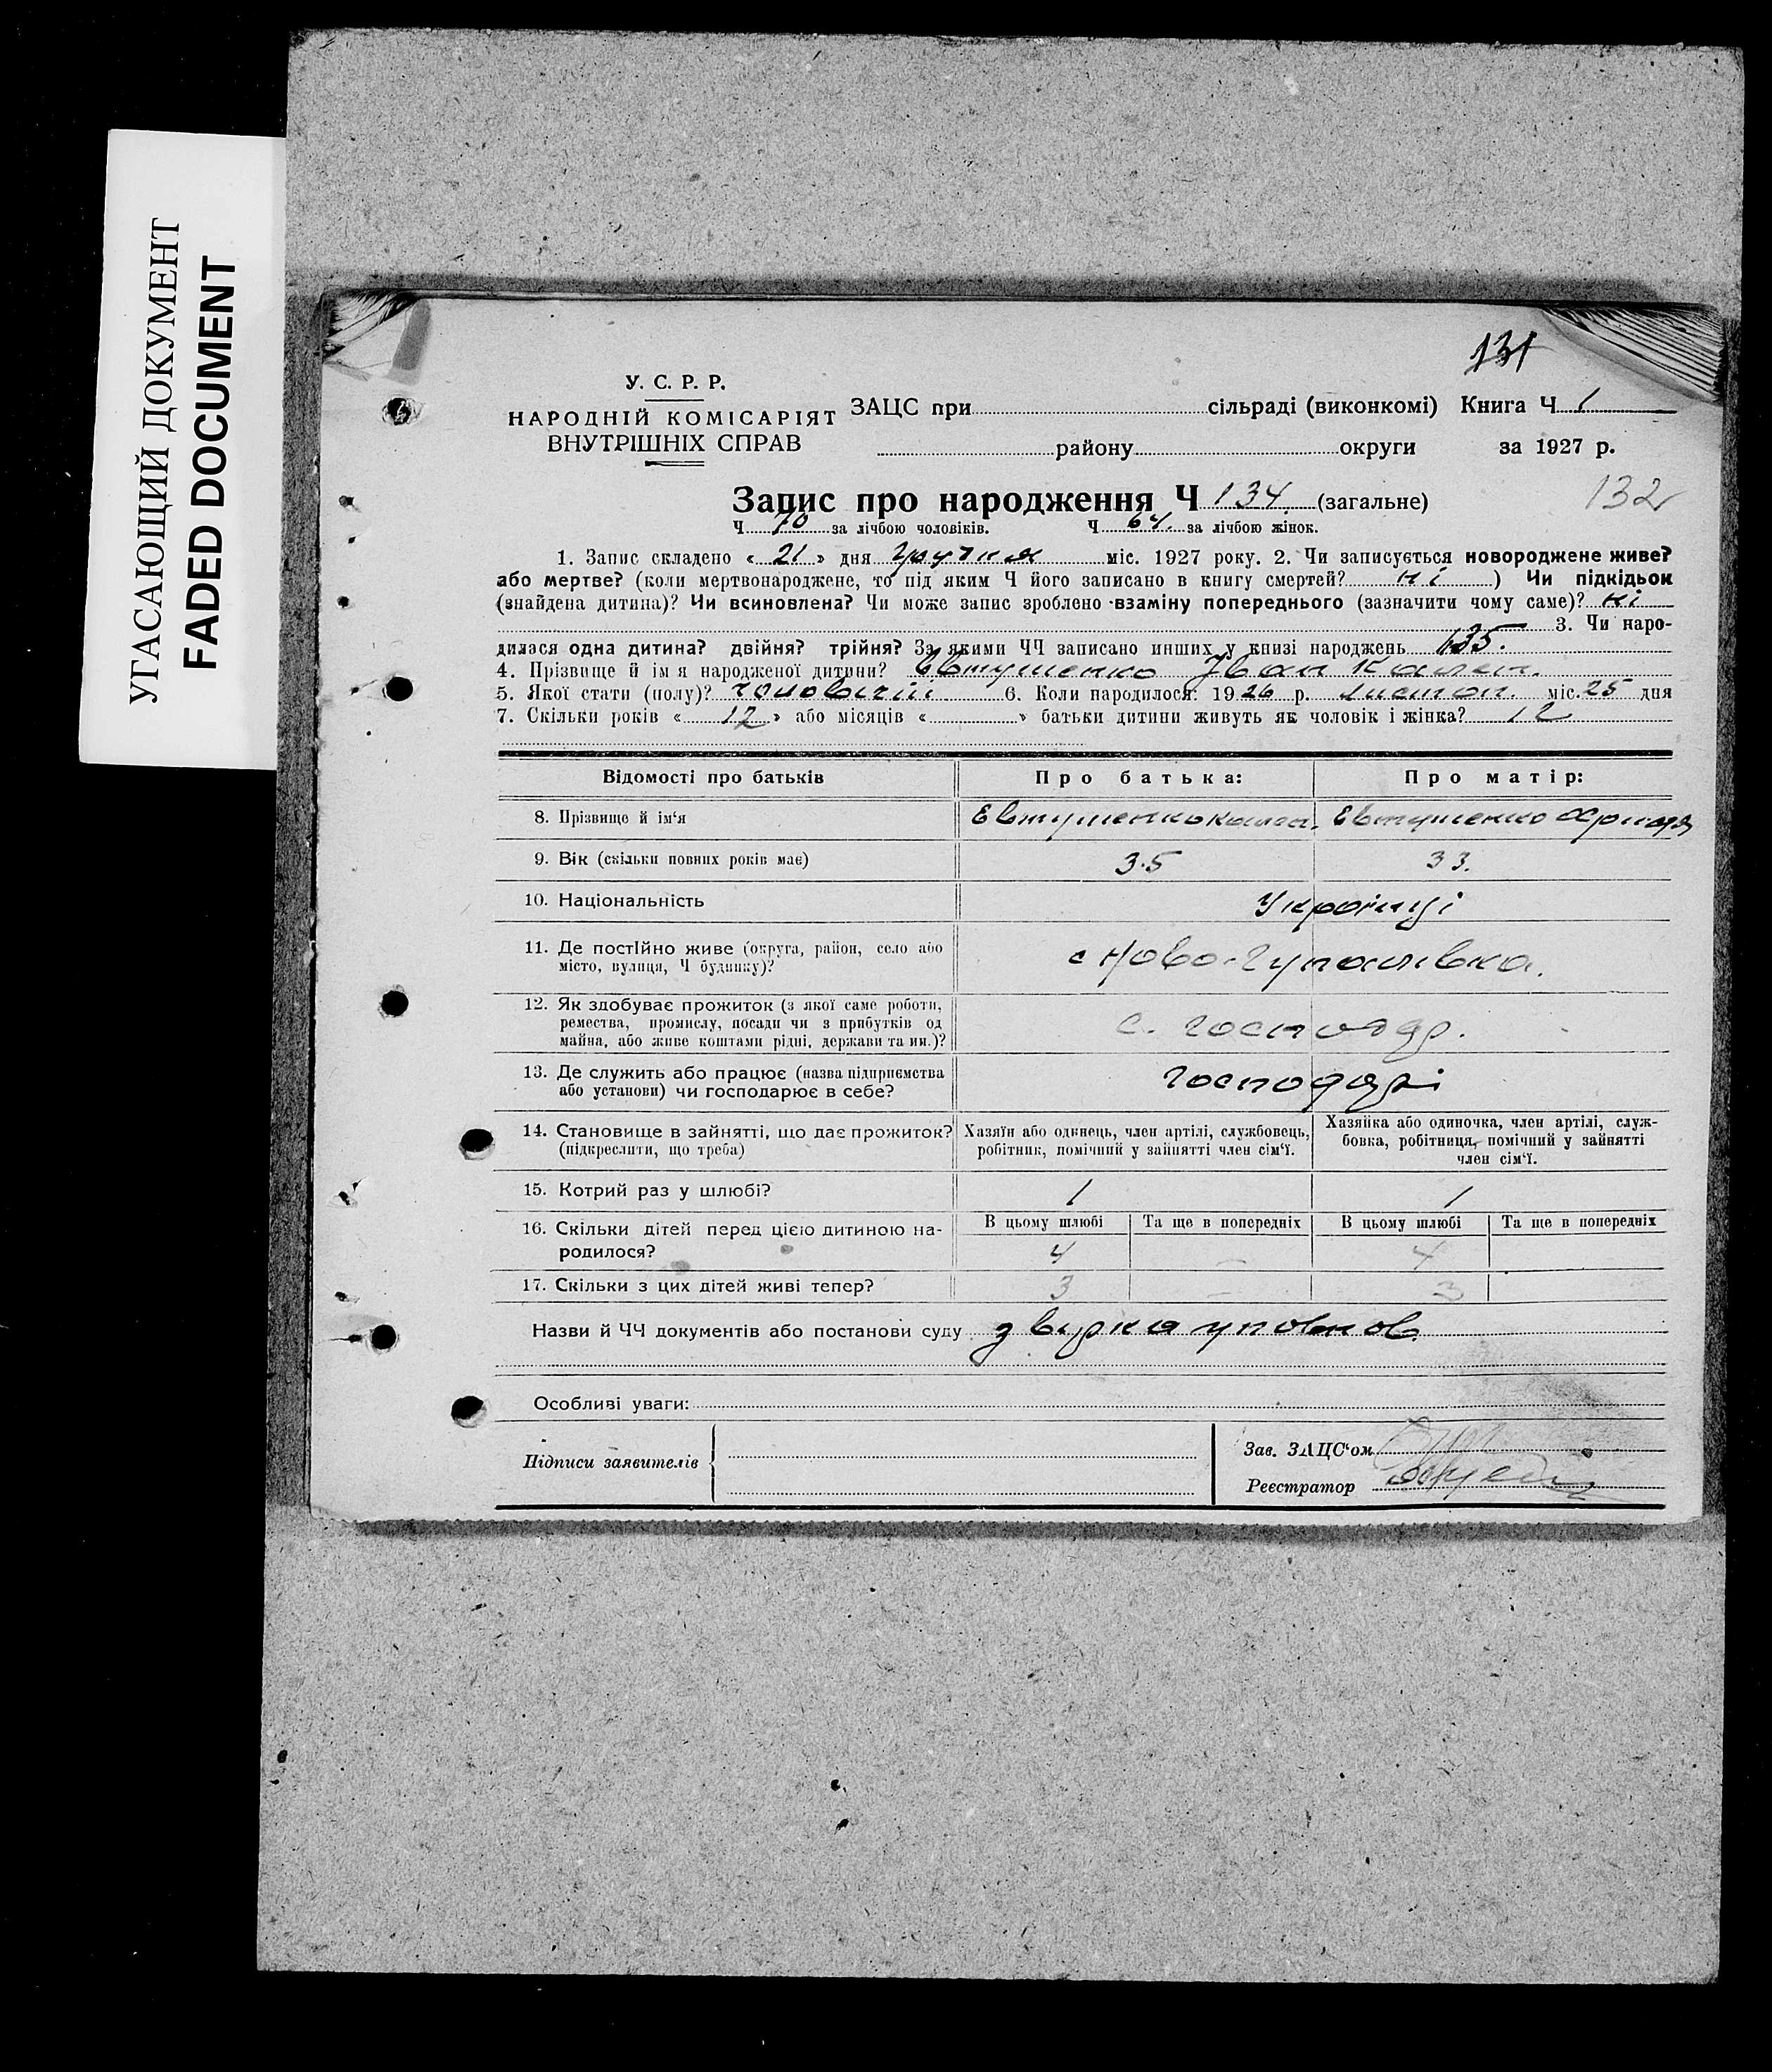 УГАСАЮЩИЙ ДОКУМЕНТ
FADED DOCUMENT
131
У. С. Р. Р.
НАРОДНІЙ КОМІСАРІЯТ
ВНУТРІШНІХ СПРАВ
ЗАЦС при сільраді (виконкомі) Книга Ч 1
району округи за 1927 р.
132
Запис про народження Ч 134 (загальне)
Ч 70 за лічбою чоловіків. Ч 64 за лічбою жінок.
1. Запис складено « 21 » дня грудня міс. 1927 року. 2. Чи записується новороджене живе?
або мертве? (коли мертвонароджене, то під яким Ч його записано в книгу смертей? ні ) Чи підкідьок
(знайдена дитина)? Чи всиновлена? Чи може запис зроблено взаміну попереднього (зазначити чому саме)? ні
3. Чи наро-
дилася одна дитина? двійня? трійня? За якими ЧЧ записано инших у книзі народжень 135.
4. Прізвище й ім я народженої дитини? Євтушенко Іван Кален.
5. Якої стати (полу)? чоловічій 6. Коли народилося: 1926 р. листоп. міс. 25 дня
7. Скільки років « 12 » або місяців « » батьки дитини живуть як чоловік і жінка? 12
Відомості про батьків Про батька: Про матір:
8. Прізвище й ім'я Евтушенко Кален. Евтушенко
9. Вік (скільки повних років має) 35 33.
10. Національність Українці
11. Де постійно живе (округа, район, село або
місто, вулиця, Ч будинку)? с Ново-Гупалівка.
12. Як здобуває прожиток (з якої саме роботи,
ремества, промислу, посади чи з прибутків од
майна, або живе коштами рідні, держави та ин.)? с. господар.
13. Де служить або працює (назва підприємства
або установи) чи господарює в себе? господарі
14. Становище в зайнятті, що дає прожиток?
(підкреслити, що треба)
Хазяїн або одинець, член артілі, службовець,
робітник, помічний у зайнятті член сім'ї.
Хазяйка або одиночка, член артілі, служ-
бовка, робітниця, помічний у зайнятті
член сім'ї.
15. Котрий раз у шлюбі? 1 1
16. Скільки дітей перед цією дитиною на-
родилося?
В цьому шлюбі Та ще в попередніх В цьому шлюбі Та ще в попередніх
4 — 4
17. Скільки з цих дітей живі тепер? 3 — 3
Назви й ЧЧ документів або постанови суду
Особливі уваги:
Підписи заявителів
Зав. ЗАЦС'ом
Реєстратор